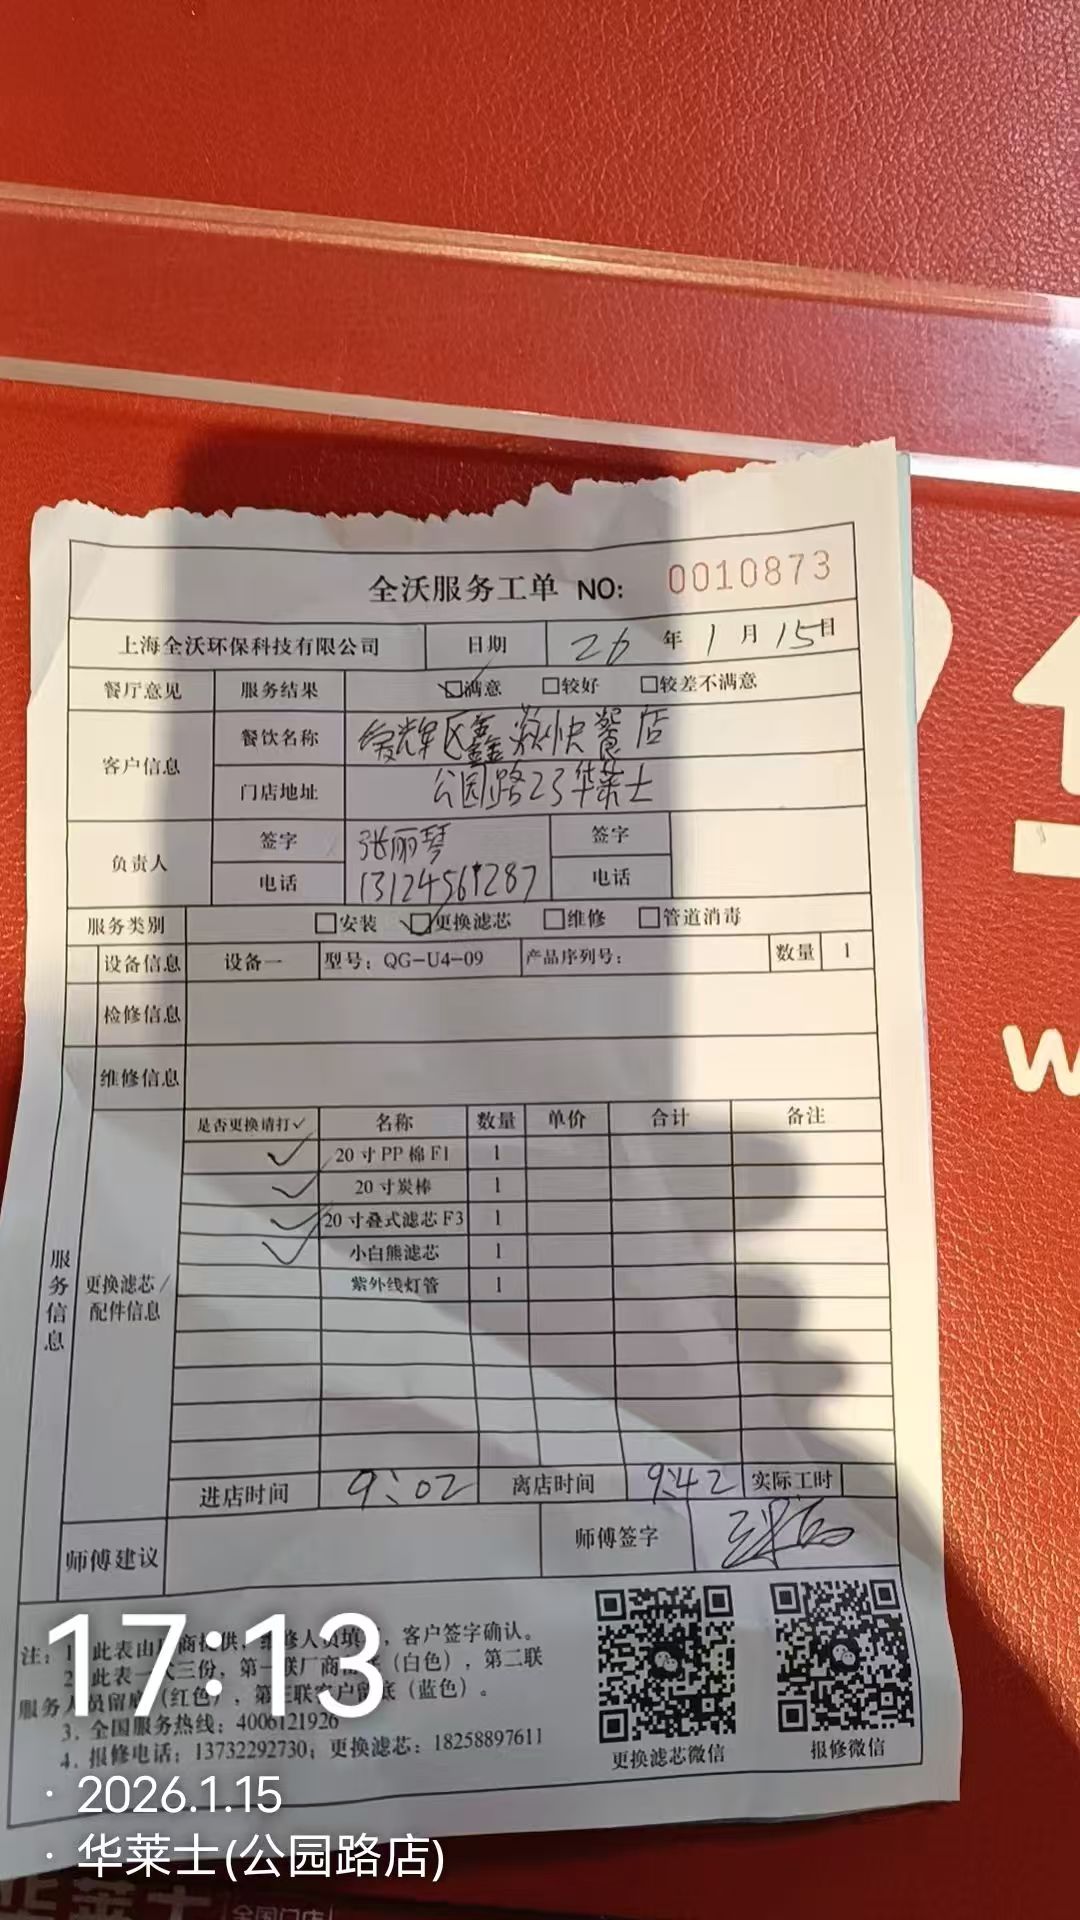 全沃服务工单 NO: 0010873
上海全沃环保科技有限公司 日期 26年1月15日
餐厅意见 服务结果 ☑满意 □较好 □较差不满意
客户信息 餐饮名称 爱辉区鑫 快餐店
门店地址 公园路23华莱士
负责人 签字 张丽琴 签字
电话 电话
服务类别 □安装 ☑更换滤芯 □维修 □管道消毒
服务信息
设备信息 设备一 型号：QG-U4-09 产品序列号： 数量 1
检修信息
维修信息
更换滤芯/配件信息
是否更换请打✓ 名称 数量 单价 合计 备注
✓ 20寸PP棉F1 1
✓ 20寸炭棒 1
✓ 20寸叠式滤芯F3 1
✓ 小白熊滤芯 1
紫外线灯管 1
进店时间 9:02 离店时间 9:42 实际工时
师傅建议 师傅签字
注：1、此表由厂商提供，维修人员填写，客户签字确认。
2、此表一式三份，第一联厂商留底（白色），第二联
服务人员留底（红色），第三联客户留底（蓝色）。
3、全国服务热线：4006121926
4、报修电话：13732292730；更换滤芯：18258897611
更换滤芯微信 报修微信
17:13
· 2026.1.15
· 华莱士(公园路店)
华莱士 全国门店
W